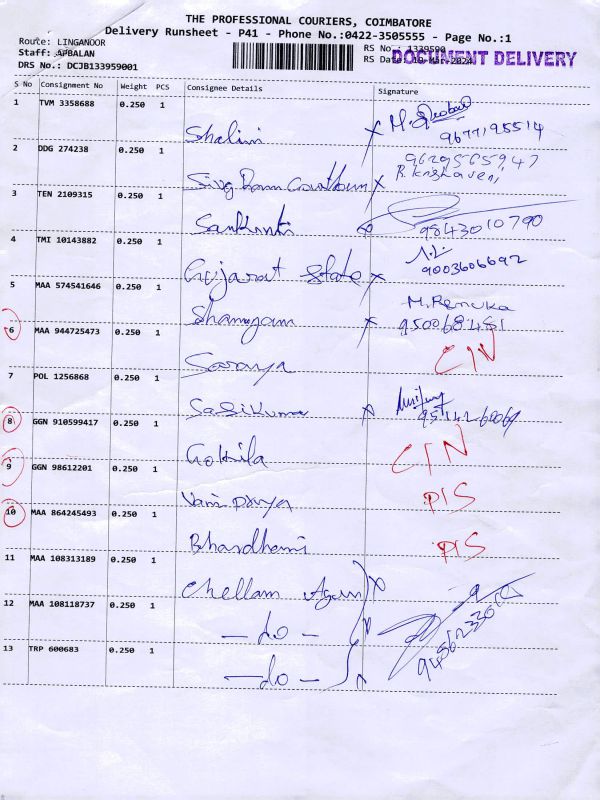 THE PROFESSIONAL COURIERS, COIMBATORE
Delivery Runsheet - P41 - Phone No.:0422-3505555 - Page No.:1
Route: LINGANOOR
RS No.: 1339590
Staff: APBALAN
RS Date: 10-Mar-2024
DOCUMENT DELIVERY
DRS No.: DCJB133959001
S No Consignment No Weight PCS Consignee Details Signature
1 TVM 3358688 0.250 1
Shalini x M.
9677195514
2 DDG 274238 0.250 1
9629565947
Siva Ram Gowtham x R. Krishaveni
3 TEN 2109315 0.250 1
Sankanti 9843010790
4 TMI 10143882 0.250 1
Gujarat State x 9003606692
5 MAA 574541646 0.250 1
M. Renuka
Shamugam x 950068481
6 MAA 944725473 0.250 1
Saranya CIN
7 POL 1256868 0.250 1
Sasikumar x
8 GGN 910599417 0.250 1
Gokila CIN
9 GGN 98612201 0.250 1
Vani Divya PIS
10 MAA 864245493 0.250 1
Bhardhami PIS
11 MAA 108313189 0.250 1
Chellam Agen x
12 MAA 108118737 0.250 1
- do -
13 TRP 600683 0.250 1
- do -